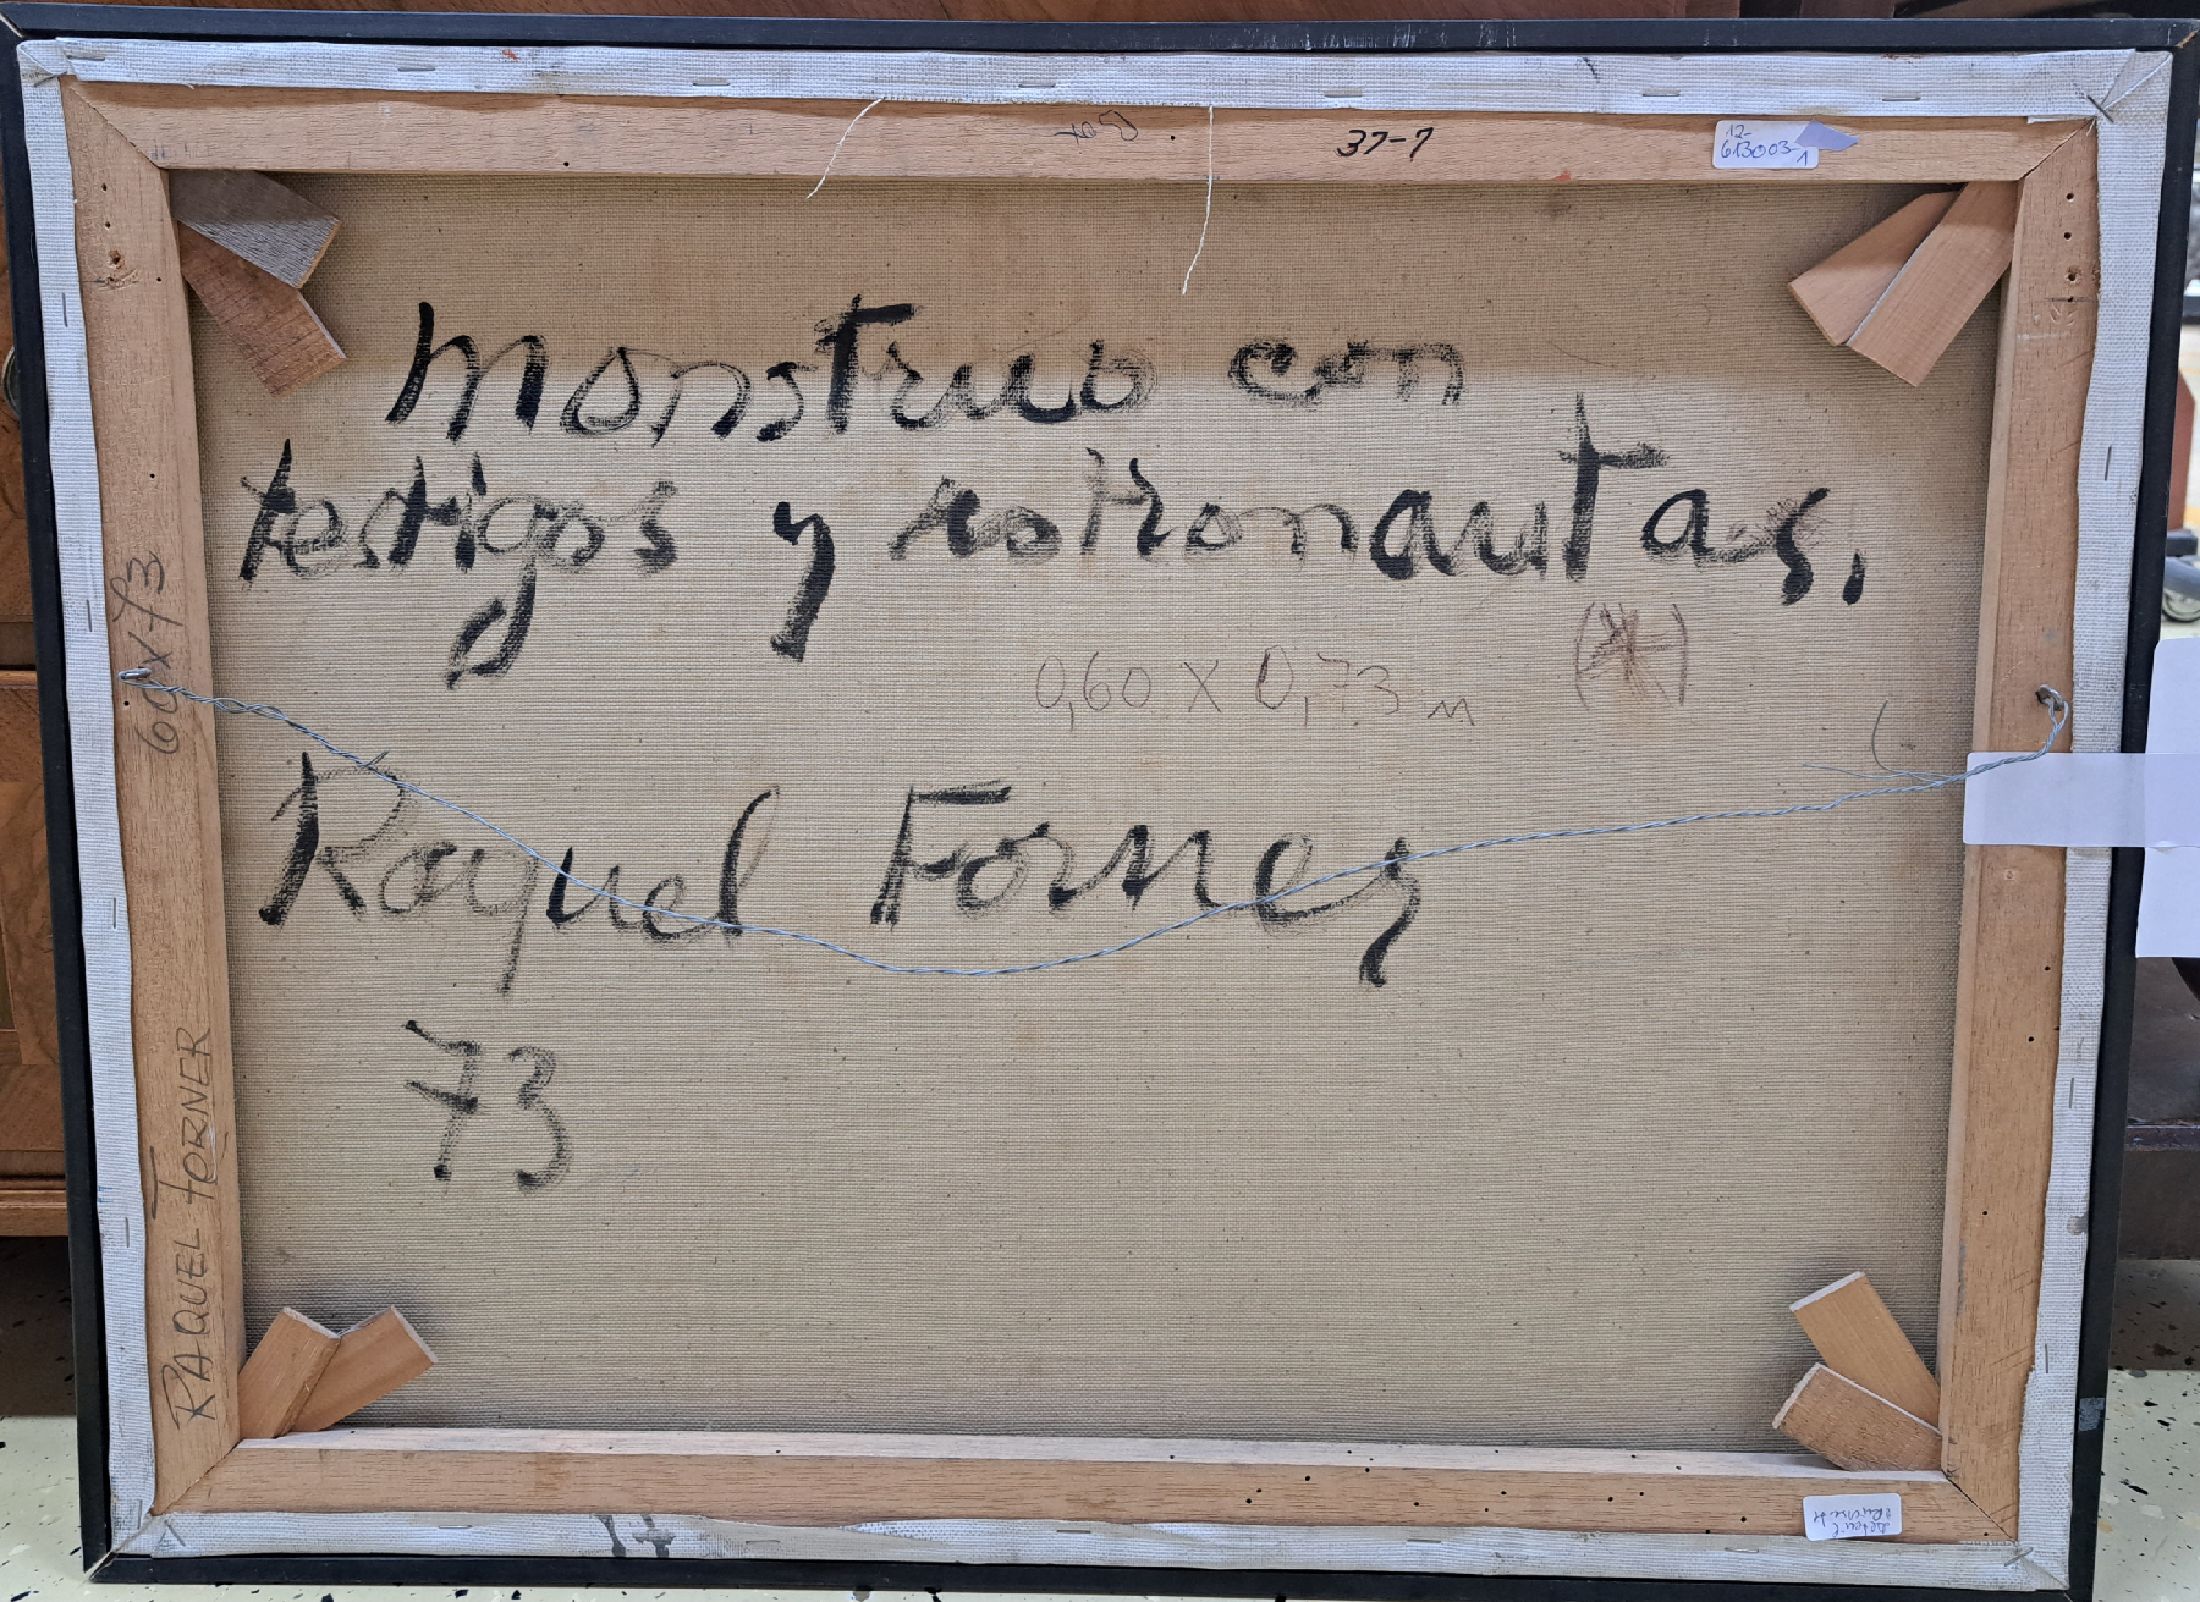 37-7
12-
613003-1
Monstruo con
testigos y astronautas.
0,60 X 0,73 m
(*)
Raquel Forner
73
60x73
RAQUEL FORNER